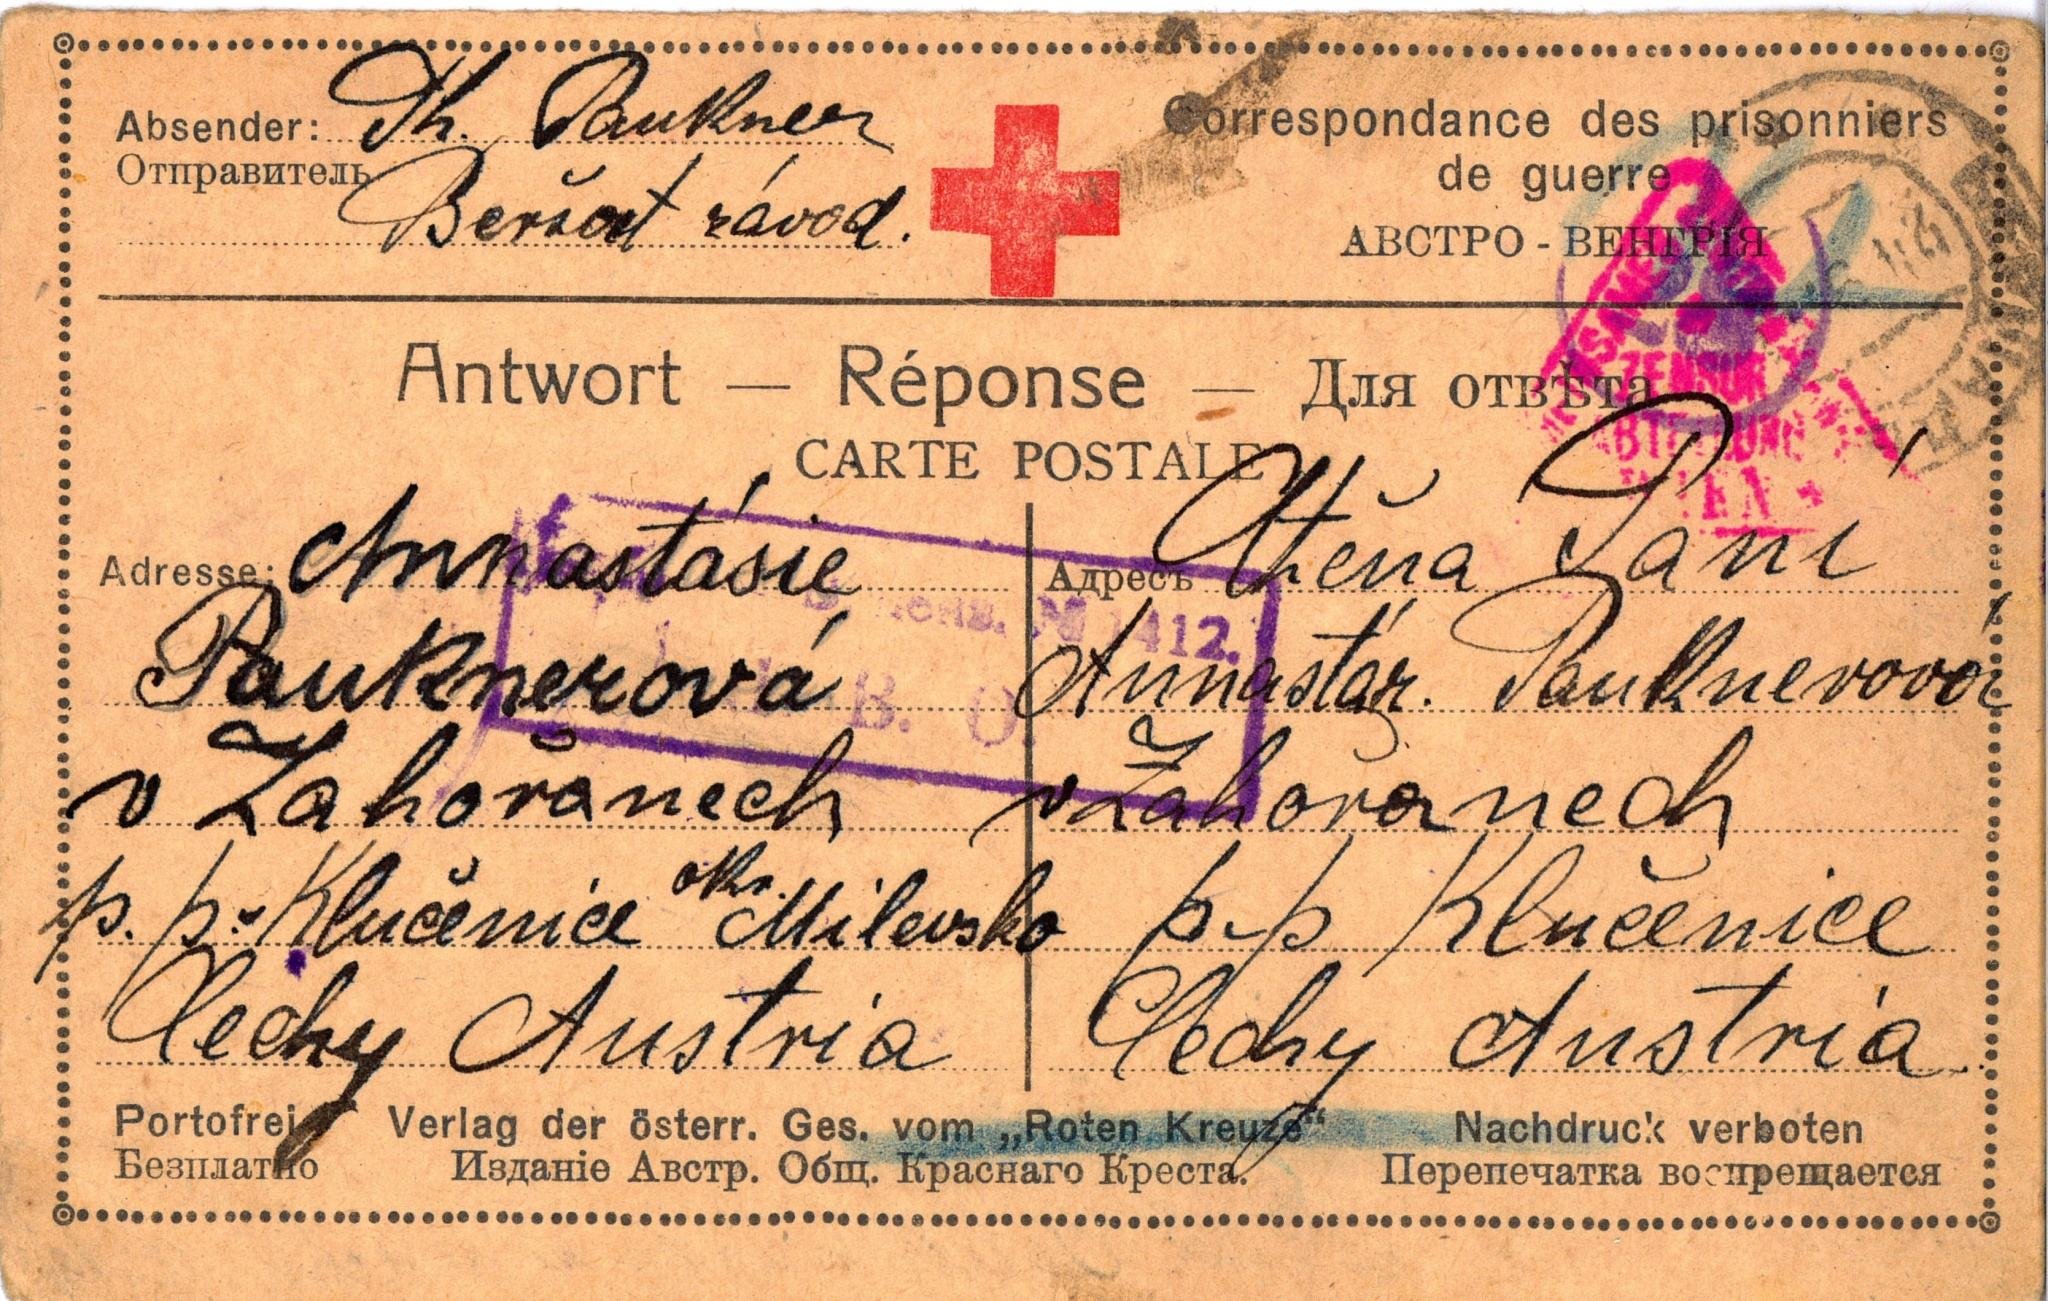 Absender: Th. Paukner
Отправитель
Beršať závod.
Correspondance des prisonniers
de guerre
АВСТРО - ВЕНГРІЯ
Antwort — Réponse — Для отвѣта
CARTE POSTALE
ZENSUR
ABTEILUNG
WIEN
№ 1412.
В. О.
Adresse: Annastásie
Pauknerová
v Zahořanech
p. p. Klučenice okr. Milevsko
Čechy Austria
Адресъ Ctěna Paní
Annastáz. Pauknerová
v Zahořanech
p. p Klučenice
Čechy Austria.
Portofrei Verlag der österr. Ges. vom „Roten Kreuze“ Nachdruck verboten
Безплатно Изданіе Австр. Общ. Краснаго Креста. Перепечатка воспрещается